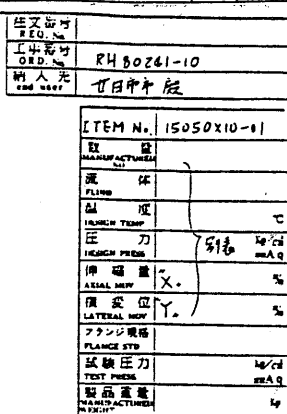 注文番号
REQ. No.
工事番号
ORD. No. RH80241-10
納入先
end user 廿日市市殿
ITEM No. 15050X10-01
数量
MANUFACTURED
流体
FLUID
温度
DESIGN TEMP ℃
圧力
DESIGN PRESS 別表 kg/c㎡
mmAq
伸縮量
AXIAL MOV X. %
偏変位
LATERAL MOV Y. %
フランジ規格
FLANGE STD
試験圧力
TEST PRESS kg/c㎡
mmAq
製品重量
MANUFACTURED
WEIGHT kg